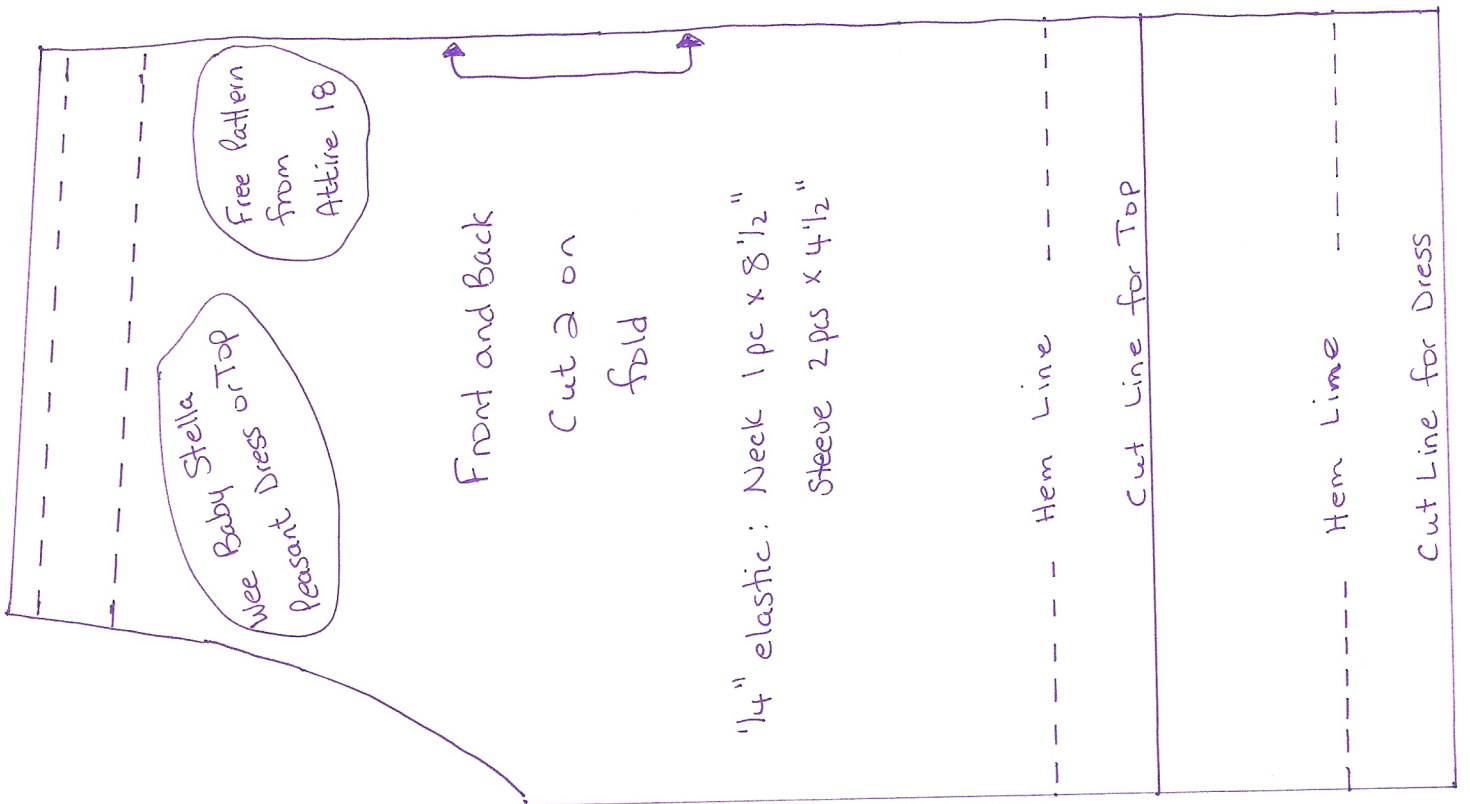 Wee Baby Stella
Peasant Dress or Top
Free Pattern
from
Attire 18
Front and Back
Cut 2 on
fold
1/4" elastic: Neck 1pc x 8 1/2"
Sleeve 2pcs x 4 1/2"
Hem Line
Cut Line for Top
Hem Line
Cut Line for Dress